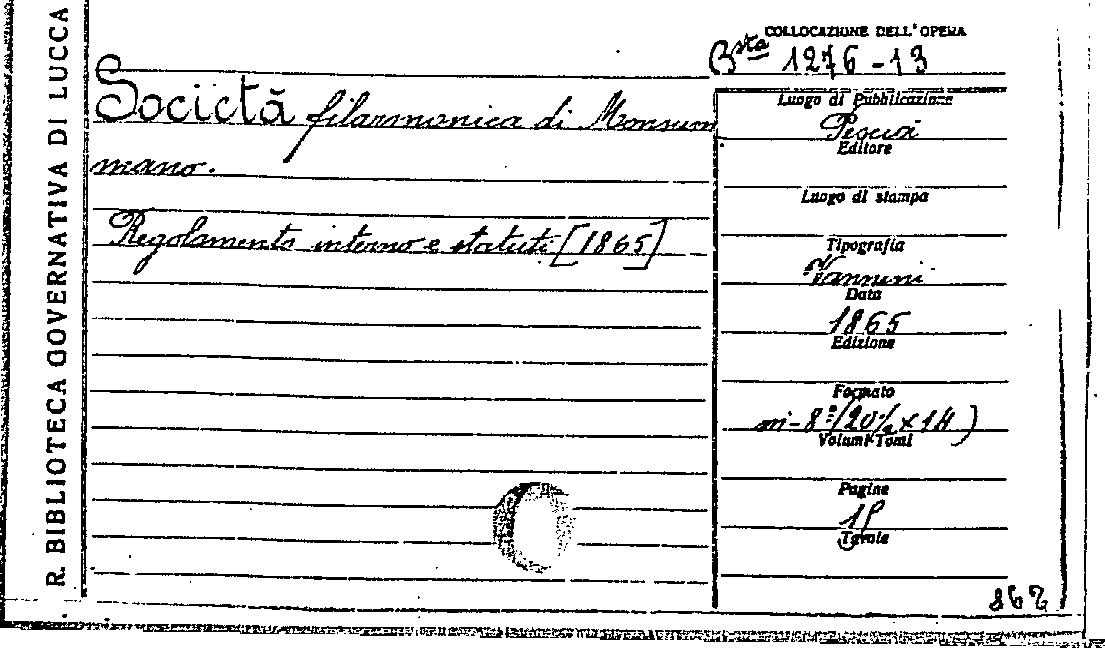 R. BIBLIOTECA GOVERNATIVA DI LUCCA
COLLOCAZIONE DELL'OPERA
Bsta 1276-13
Società filarmonica di Monsum
mano.
Regolamento interno e statuti [1865]
Luogo di Pubblicazione
Pescia
Editore
Luogo di stampa
Tipografia
Vannini
Data
1865
Edizione
Formato
in-8º (20½ x 14)
Volumi-Tomi
Pagine
Tavole
862